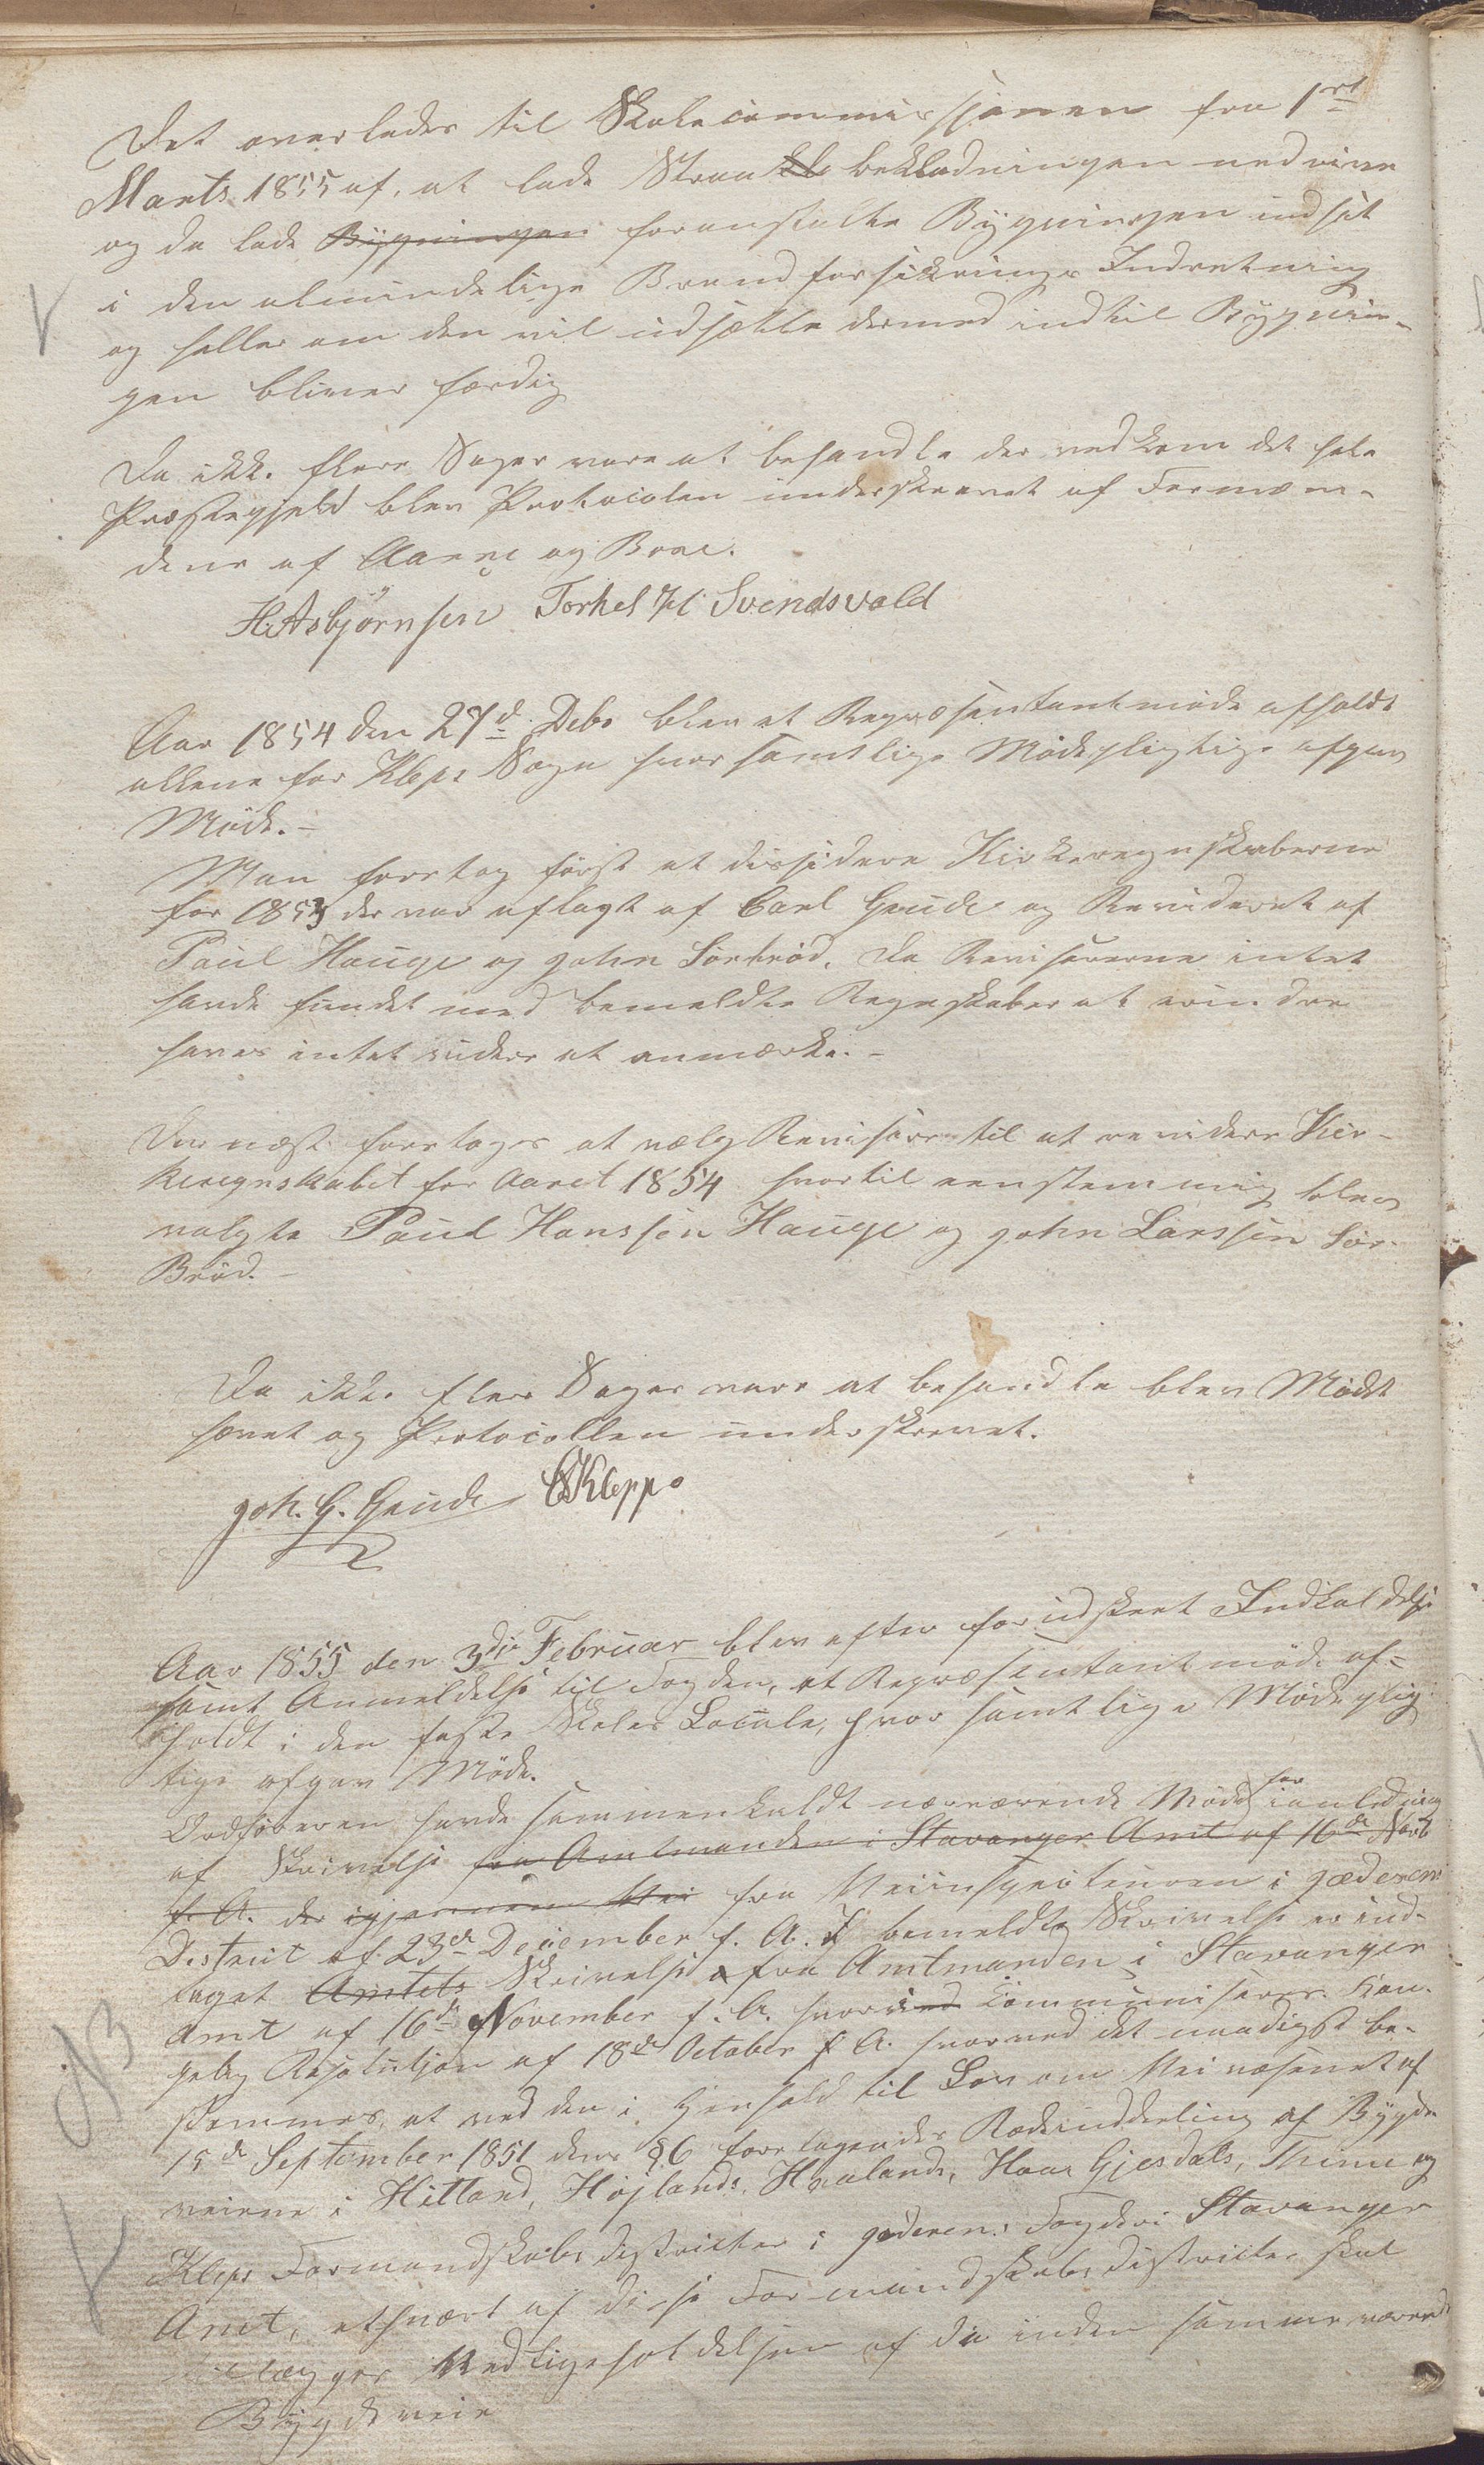 Det overlades til Skolecommissjonen fra 1ste
Marts 1855 af, at lade Straa beklædningen nedrive
og da lade Bygningen foranstalte Bygningen indsat
i den almindelige Brandforsikrings Indretning
og heller om den vil udsætte dermed indtil Bygnin-
gen bliver færdig
Da ikke flere Sager vare at behandle der vedkom det hele
Præstegjeld blev Protocolen underskrevet af Formæn-
dene af Aarre og Bore.
H. Asbjørnsen Torkel Svendsvold
Aar 1854 den 27d Debr blev et Repræsentantmøde afholdt
allene for Kleps Sogn hvor samtlige Mødepligtige afgav
Møde.-
Man foretog først at dessidere Kirkeregnskaberne
for 1853 der var aflagt af Carl Grude og Revideret af
Paul Hauge og John Sørbrød. Da Revisorerne intet
havde fundet med bemeldte Regnskaber at erindre
haves intet videre at anmærke.-
Dernæst foretoges at vælg Revisorer til at revidere Kir-
keregnskabet for Aaret 1854 hvortil eenstemmig blev
valgte Paul Hanssen Hauge og John Larssen Sør-
Brød.-
Da ikke flere Sager vare at behandle blev Mødet
hævet og Protocollen underskrevet.
Joh. G. Grude Kleppe
Aar 1855 den 3die Februar blev efter forudskeet Indkaldelse
samt Anmeldelse til Fogden, et Repræsentantmøde af-
holdt i den faste Skoles Locale, hvor samtlige Mødeplig-
tige afgav Møde.
Ordføreren havde sammenkaldt nærværende Møde i anledning
af Skrivelse fra Amtmanden i Stavanger Amt af 16de Novb
f. A. der igjennem Vei fra Veiinspecteuren i Jæderens
District af 23de December f. A. I bemeldte Skrivelse er ind-
taget Amtets Skrivelse fra Amtmanden i Stavanger
Amt af 16de November f. A. hvorved communiseres Kon-
gelig Resolutjon af 18de October f. A. hvorved det naadigst be-
stemmes, at ved den i Henhold til Lov om Veivæsenet af
15de September 1851 dens § 6 foretagendes Rodeinddeling af Bygde
veiene i Hetland, Højlands, Haalands, Haae Gjesdals, Thime og
Kleps Formandskabsdistricter i Jæderens Fogderi Stavanger
Amt, ethvert af disse Formandskabsdistricter skal
tillægges Vedligeholdelsen af de inden samme værende
Bygdeveie